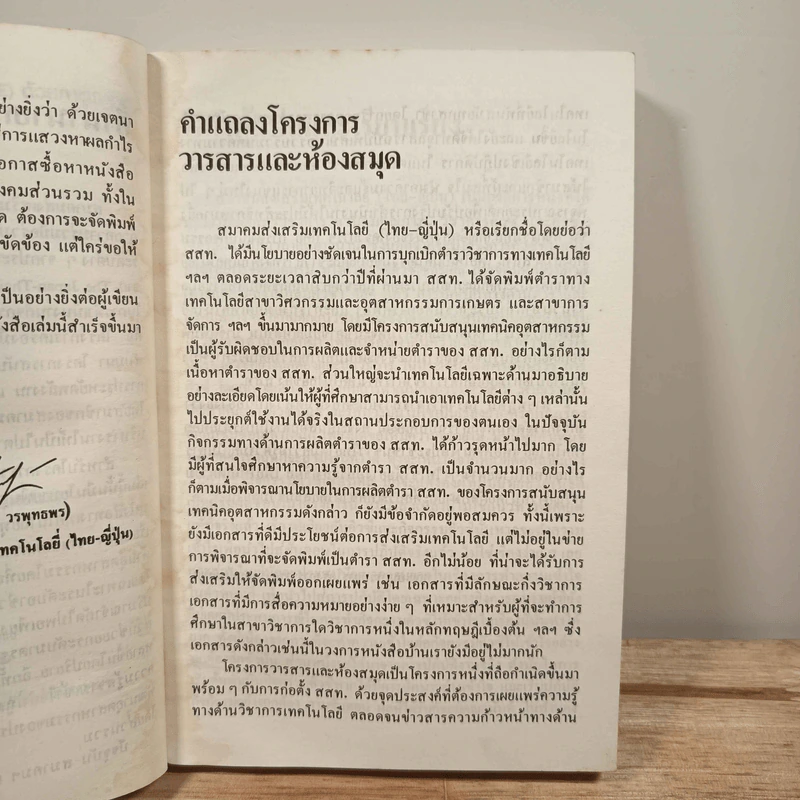 ย่างยิ่งว่า ด้วยเจตนา
การแสวงหาผลกำไร
อกาสซื้อหาหนังสือ
งคมส่วนรวม ทั้งใน
ต้องการจะจัดพิมพ์
ขัดข้อง แต่ใคร่ขอให้
เป็นอย่างยิ่งต่อผู้เขียน
งสือเล่มนี้สำเร็จขึ้นมา
วรพุทธพร)
ทคโนโลยี (ไทย-ญี่ปุ่น)
คำแถลงโครงการ
วารสารและห้องสมุด
สมาคมส่งเสริมเทคโนโลยี (ไทย-ญี่ปุ่น) หรือเรียกชื่อโดยย่อว่า
สสท. ได้มีนโยบายอย่างชัดเจนในการบุกเบิกตำราวิชาการทางเทคโนโลยี
ฯลฯ ตลอดระยะเวลาสิบกว่าปีที่ผ่านมา สสท. ได้จัดพิมพ์ตำราทาง
เทคโนโลยีสาขาวิศวกรรมและอุตสาหกรรมการเกษตร และสาขาการ
จัดการ ฯลฯ ขึ้นมามากมาย โดยมีโครงการสนับสนุนเทคนิคอุตสาหกรรม
เป็นผู้รับผิดชอบในการผลิตและจำหน่ายตำราของ สสท. อย่างไรก็ตาม
เนื้อหาตำราของ สสท. ส่วนใหญ่จะนำเทคโนโลยีเฉพาะด้านมาอธิบาย
อย่างละเอียดโดยเน้นให้ผู้ที่ศึกษาสามารถนำเอาเทคโนโลยีต่าง ๆ เหล่านั้น
ไปประยุกต์ใช้งานได้จริงในสถานประกอบการของตนเอง ในปัจจุบัน
กิจกรรมทางด้านการผลิตตำราของ สสท. ได้ก้าวรุดหน้าไปมาก โดย
มีผู้ที่สนใจศึกษาหาความรู้จากตำรา สสท. เป็นจำนวนมาก อย่างไร
ก็ตามเมื่อพิจารณานโยบายในการผลิตตำรา สสท. ของโครงการสนับสนุน
เทคนิคอุตสาหกรรมดังกล่าว ก็ยังมีข้อจำกัดอยู่พอสมควร ทั้งนี้เพราะ
ยังมีเอกสารที่ดีมีประโยชน์ต่อการส่งเสริมเทคโนโลยี แต่ไม่อยู่ในข่าย
การพิจารณาที่จะจัดพิมพ์เป็นตำรา สสท. อีกไม่น้อย ที่น่าจะได้รับการ
ส่งเสริมให้จัดพิมพ์ออกเผยแพร่ เช่น เอกสารที่มีลักษณะกึ่งวิชาการ
เอกสารที่มีการสื่อความหมายอย่างง่าย ๆ ที่เหมาะสำหรับผู้ที่จะทำการ
ศึกษาในสาขาวิชาการใดวิชาการหนึ่งในหลักทฤษฎีเบื้องต้น ฯลฯ ซึ่ง
เอกสารดังกล่าวเช่นนี้ในวงการหนังสือบ้านเรายังมีอยู่ไม่มากนัก
โครงการวารสารและห้องสมุดเป็นโครงการหนึ่งที่ถือกำเนิดขึ้นมา
พร้อม ๆ กับการก่อตั้ง สสท. ด้วยจุดประสงค์ที่ต้องการเผยแพร่ความรู้
ทางด้านวิชาการเทคโนโลยี ตลอดจนข่าวสารความก้าวหน้าทางด้าน